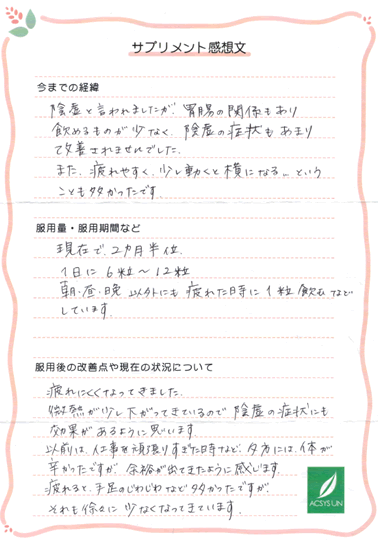 サプリメント感想文
今までの経緯
陰虚と言われましたが、胃腸の関係もあり
飲めるものが少なく、陰虚の症状もあまり
改善されませんでした。
また、疲れやすく、少し動くと横になる… という
ことも多かったです。
服用量・服用期間など
現在で、2カ月半位.
1日に 6粒～12粒
朝・昼・晩 以外にも 疲れた時に 1粒 飲む など
しています.
服用後の改善点や現在の状況について
疲れにくくなってきました.
微熱が少し下がってきているので 陰虚の症状にも
効果が あるように思います
以前は、仕事を頑張りすぎた時など、夕方には、体が
辛かったですが、余裕が出てきたように感じます.
疲れると、手足のじわじわなど多かったですが、
それも徐々に 少なくなってきています.
ACSYSUN